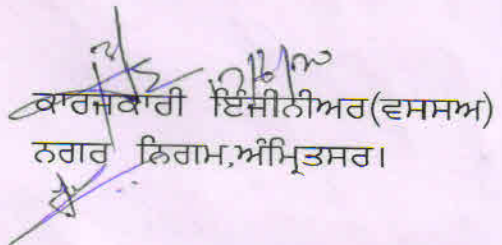 ਕਾਰਜਕਾਰੀ ਇੰਜੀਨੀਅਰ(ਵਸਸਅ)
ਨਗਰ ਨਿਗਮ,ਅੰਮ੍ਰਿਤਸਰ।